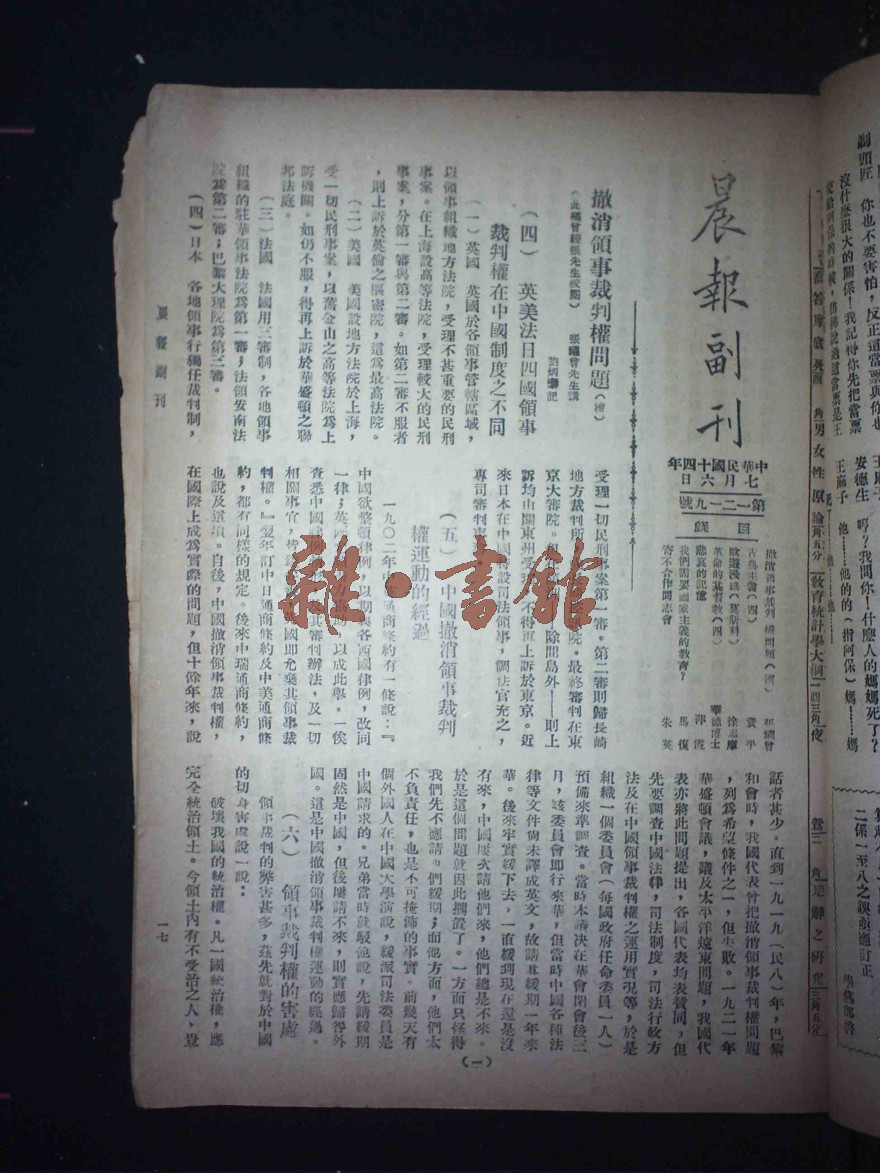 晨報副刊
中華民國十四年
七月六日
第一二一九號
目錄
撤消領事裁判權問題(續)
古典主義(四)
歐遊漫錄(莫斯科)
革命的基督教(四)
悲哀的記憶
我們需要國家主義的教育?
寄不合作同志會
張耀曾
資平
徐志摩
華德博士
馬復
朱英
撤消領事裁判權問題(續)
(此稿曾經張先生校閱)
張耀曾先生講
(四) 英美法日四國領事
裁判權在中國制度之不同
(一)英國 英國於各領事管轄區域,
以領事組織地方法院,受理不甚重要的民刑
事案。在上海設高等法院,受理較大的民刑
事案,分第一審與第二審。如第二審不服者
,則上訴於英倫之樞密院,這爲最高法院。
(二)美國 美國設地方法院於上海,
受一切民刑事案,以舊金山之高等法院爲上
訴機關。如仍不服,得再上訴於華盛頓之聯
邦法庭。
(三)法國 法國用三審制,各地領事
組織的駐華領事法院爲第一審;法領安南法
院爲第二審;巴黎大理院爲第三審。
(四)日本 各地領事行獨任裁判制,
受理一切民刑事案第一審。第二審則歸長崎
地方裁判所
京大審院。
訴均由關東州受理,不得再上訴於東京。近
來日本在中國特設司法領事,調法官充之,
專司審判事
(五)中國撤消領事裁判
權運動的經過
一九〇二年中 通商條約有一條說:『
中國欲整頓律例,以期與各西國律例,改同
一律;英國 助,以成此舉。一俟
查悉中國 其審判辦法,及一切
相關事宜, 國即允棄其領事裁
判權。』翌年訂中日通商條約及中美通商條
約,都有同樣的規定。後來中瑞通商條約,
也說及這項。自後,中國撤消領事裁判權,
在國際上成爲實際的問題,但十餘年來,說
話者甚少。直到一九一九(民八)年,巴黎
和會時,我國代表曾把撤消領事裁判權問題
,列爲希望條件之一,但失敗。一九二一年
華盛頓會議,議及太平洋遠東問題,我國代
表亦將此問題提出,各國代表均表贊同,但
先要調查中國法律,司法制度,司法行政方
法及在中國領事裁判權之運用實況等,於是
組織一個委員會(每國政府任命委員一人)
預備來華調查。當時本議決在華會閉會後三
月,該委員會即行來華,但當時中國各種法
律等文件尙未譯成英文,故請其緩期一年來
華。後來字實緩下去,一直緩到現在還是沒
有來,中國屢次請他們來,他們總是不來。
於是這個問題就因此擱置了。一方面只怪得
我們先不應請他們緩期;而他方面,他們太
不負責任,也是不可掩飾的事實。前幾天有
個外國人在中國大學演說,緩派司法委員是
中國請求的。兄弟當時就駁他說,先請緩期
固然是中國,但後屢請不來,則實應歸咎外
國。這是中國撤消領事裁判權運動的經過。
(六) 領事裁判權的害處
領事裁判的弊害甚多,茲先就對於中國
的切身害處說一說:
破壞我國的統治權。凡一國統治權,應
完全統治領土。今領土內有不受治之人,豈
晨報副刊
一七
(一)
剃頭匠 你也不要害怕,反正這當票與你也
沒什麼很大的關係!我記得你先把當票
安德生 哼?我問你!什麼人的媽媽死了?
王麻子 他……他的的(指阿保)媽……媽
男女性原論
教育統計學大綱
雜・書館